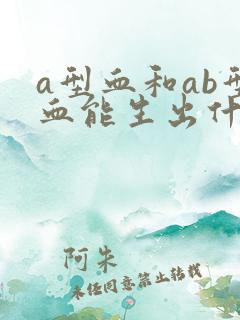 a型血和ab型
血能生出什
阿朱
未经同意禁止转载